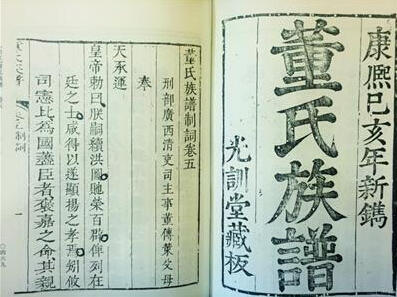 康熙己亥年新鐫
董氏族譜
光訓堂藏板
董氏族譜制詞卷五
刑部廣西清吏司主事董傳策父母
奉
天承運
皇帝勅曰朕嗣續洪圖貤榮百辟俾列在
廷之士咸得以遂顯揚之孝焉矧攸
司憲比為國藎臣者褒嘉之命其親